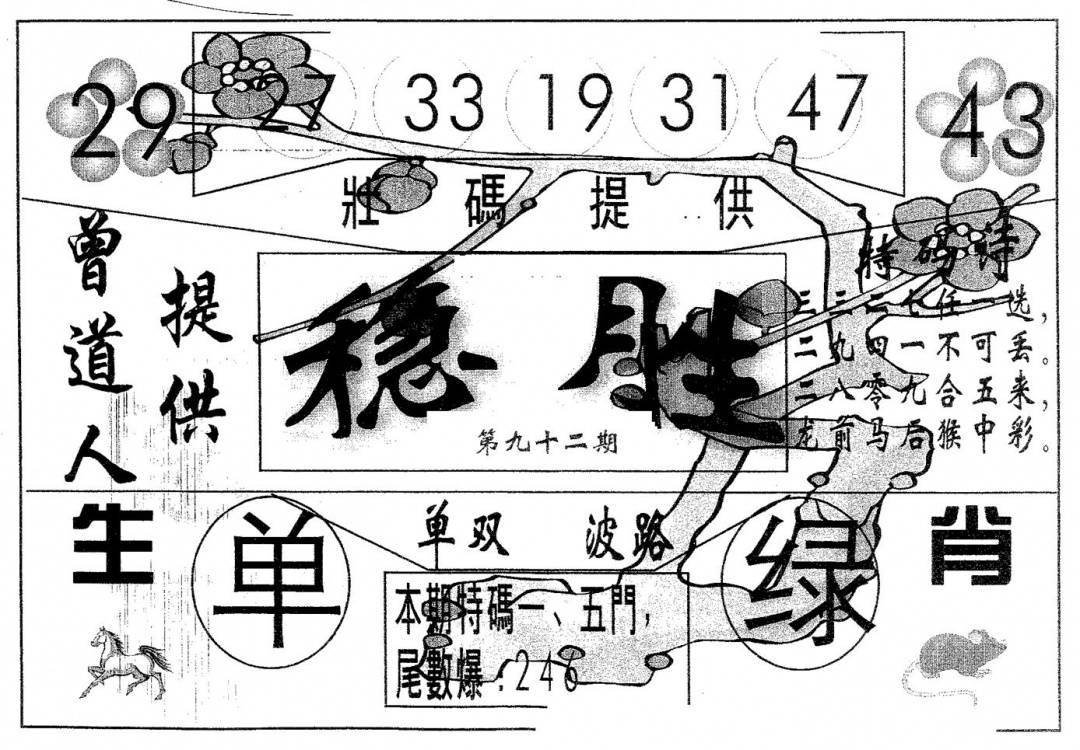 29 27 33 19 31 47 43
壯碼提供
曾道人
提供
稳胜
第九十二期
特码诗
三三二七任一选，
二九四一不可丢。
二八零九合五来，
龙前马后猴中彩。
生肖
单双 波路
单
绿
本期特碼一、五門，
尾數爆：246